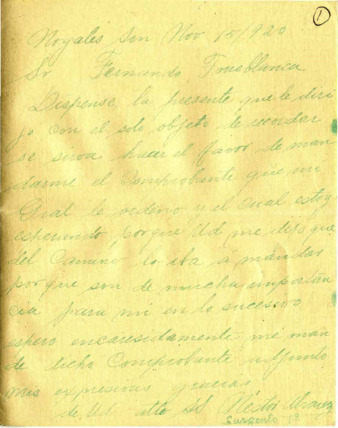 1
Nogales Son Nov 15/920
Sr Fernando Torreblanca
Dispense la presente que le diri
jo con el solo objeto de recordar
se sirva hacer el favor de man
darme el Comprobante que mi
Gral le ordeno y el cual estoy
esperando, porque Ud me dijo que
del Camino lo iba a mandar
porque son de mucha importan
cia para mi en lo sucesoro
espero encaresidamente me man
de dicho Comprobante adjunto
mis expresivas gracias
de Ud atto SS Nestor
Sargento 1º